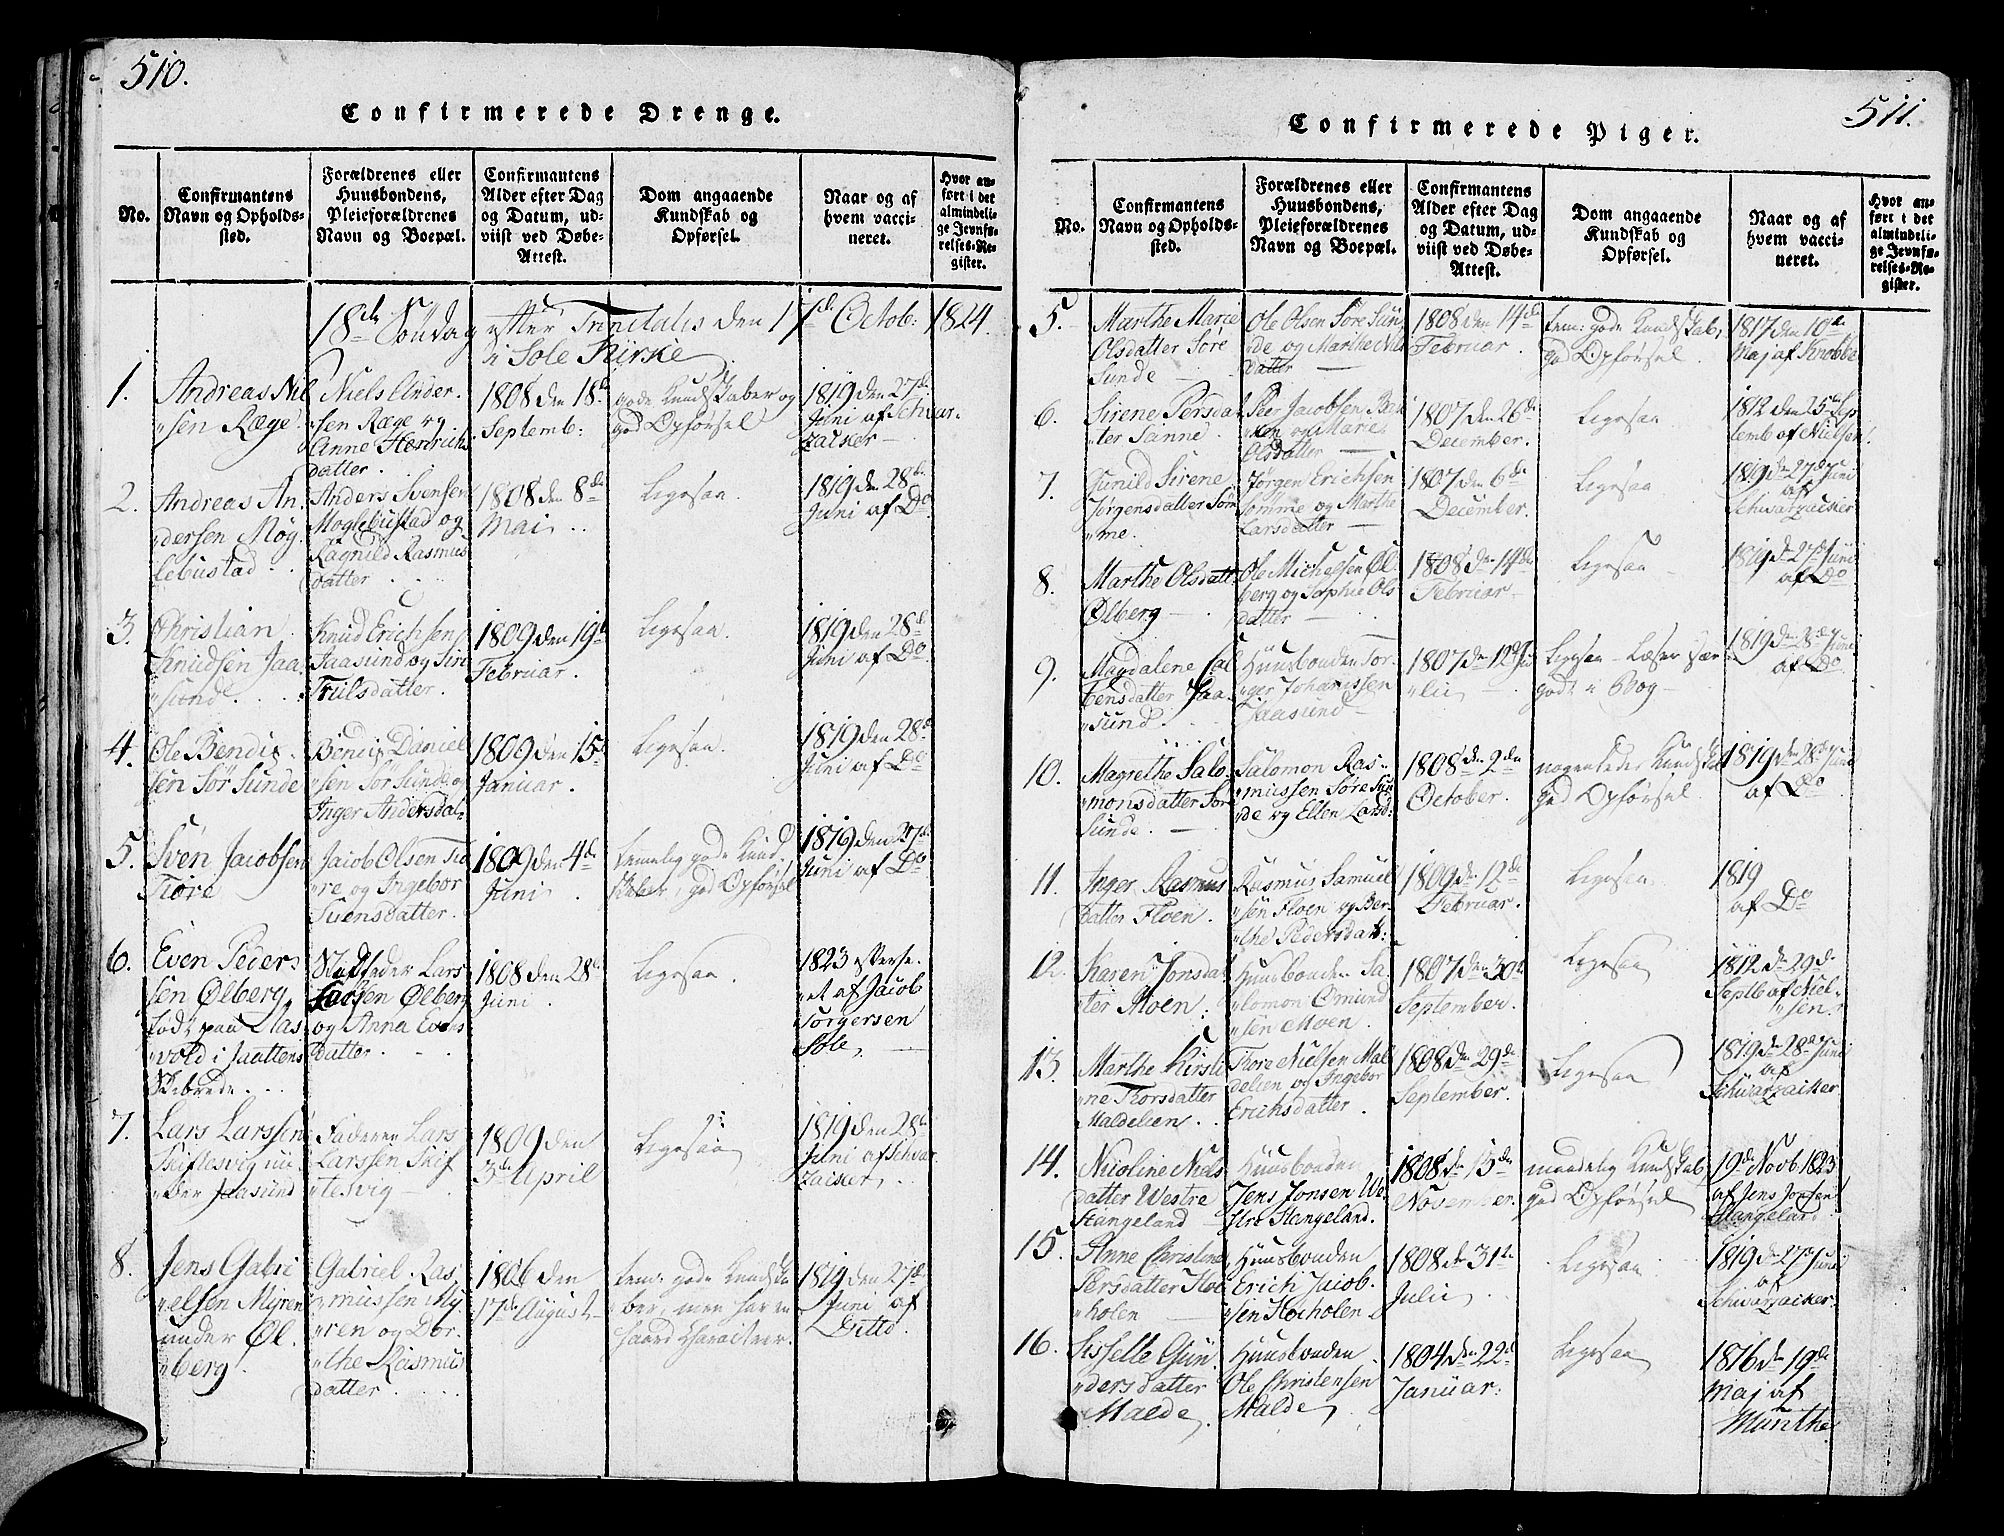 510.
Confirmerede Drenge.
No.
Confirmantens
Navn og Opholds-
sted.
Forældrenes eller
Huusbondens,
Pleieforældrenes
Navn og Boepæl.
Confirmantens
Alder efter Dag
og Datum, ud-
viist ved Døbe-
Attest.
Dom angaaende
Kundskab og
Opførsel.
Naar og af
hvem vacci-
neret.
Hvor an-
ført i det
almindeli-
ge Jevnfø-
relses-Re-
gister.
18de Søndag efter Trinitatis den 17de Octob: 1824.
i Sole Kirke
1.
Andreas Niel
"sen Ræge.
Niels Ander.
"sen Ræge og
Anne Henrichs
datter.
1808 den 18de
Septemb:
gode Kundskaber og
god Opførsel
1819 den 27de
Juni af Schwar.
zacker
2.
Andreas An
"dersen Mög
lebustad
Anders Svensen
Moglebustad og
Ragnild Rasmus
datter
1808 den 8de
Mai
Ligesaa.
1819 den 28de
Juni af Do
3.
Christian
Knudsen Jaa
"sund
Knud Erichsen
Jaasund og Siri
Trulsdatter.
1809 den 19de
Februar.
Ligesaa.
1819 den 28de
Juni af Do
4.
Ole Bendix
sen Sør Sunde
Bendix Daniel
"sen Sør Sunde og
Inger Andersdat-
1809 den 15de
Januar.
Ligesaa.
1819 den 28de
Juni af Do
5.
Sven Jacobsen
Tiøre
Jacob Olsen Tiø
"re og Ingebor
Svensdatter.
1809 den 4de
Juni
temmelig gode Kund
skaber, god Opførsel
1819 den 27de
Juni af Do
6.
Even Peder-
sen Ølberg,
født paa Aas
"vold i Jaattens
Skibrede
Stiffader Lars
Larsen Ølberg
og Anna Evens
datter
1808 den 28de
Juni
Ligesaa.
1823
"et af Jacob
Sørgersen
Sole,
7.
Lars Larssen
Skiftesvig un
"der Jaasund
Faderen Lars
Larssen Skif
"tesvig
1809 den
3de April
Ligesaa
1819 den 28de
Juni af Schwar.
zacker,
8.
Jens Gabri
"elsen Myren
under Øl.
"berg
Gabriel Ras
"mussen My
"ren og Dor.
"the Rasmus
datter
1806 den
17de August
tem: gode Kundska
ber, men har en
haard Charakteer.
1819 den 27de
Juni af
Ditto.
511.
Confirmerede Piger.
No.
Confirmantens
Navn og Opholds-
sted.
Forældrenes eller
Huusbondens,
Pleieforældrenes
Navn og Boepæl.
Confirmantens
Alder efter Dag
og Datum, ud-
viist ved Døbe-
Attest.
Dom angaaende
Kundskab og
Opførsel.
Naar og af
hvem vacci-
neret.
Hvor an-
ført i det
almindeli-
ge Jevnfø-
relses-Re-
gister.
5.
Marthe Marie
Olsdatter Søre
Sunde
Ole Olsen Søre Sun,
"de og Marthe Niels
datter
1808 den 14de
Februar.
tem: gode Kundskab,
god Opførsel
1817 den 10de
Maj af Knobbe
6.
Sirene Persdat
"ter Sanne.
Peer Jacobsen
og Marie
Olsdatter
1807 den 26de
December.
Ligesaa
1812 den 25de Sep
temb af Nielsen.
7.
Gunild Sirene
Jørgensdatter Søm
"me.
Jørgen Erichsen
Somme og Marthe
Larsdatter
1807 den 6de
December.
Ligesaa
1819 den 27de Juni
af
Schwarzacker
8.
Marthe Olsdatt
Ølberg
Ole Michelsen Øl
berg og Sophie Ols
datter
1808 den 14de
Februar
Ligesaa
1819 den 27de Juni
af Do
9.
Magdalene Sal
Jaa
"sund.
Huusbonden Tor.
"ger Johannssen
Jaasund
1807 den 12de Ju
"lii
Ligesaa - Læser sær
godt i Bog
1819 den 28de Juni
af Do
10.
Magrethe Salo
"monsdatter Søre
Sunde.
Salomon Ras-
"mussen Søre Sun
"de og Ellen Larsd:
1808 den 2den
October.
nogenledes Kundskab
god Opførsel
1819 den 28de Juni
af Do
11.
Inger Rasmus
datter Floen.
Rasmus Samuel
"sen Floen og Ber
"the Pedersdat:
1809 den 12de
Februar.
Ligesaa
1819
af Do
12.
Karen Jonsdat
"ter Moen
Huusbonden Sa.
"lomon Omund
"sen Moen.
1807 den 30te
September.
Ligesaa
1812 den 29de
Septb af Niel-
"sen.
13.
Marthe Kirsti
"ne Thorsdatter
Maldelien.
Thore Nielsen Mal
delien og Ingebor
Erichsdatter.
1808 den 29de
September.
Ligesaa
1819 den 28de Juni
af
Schwarzacker
14.
Nicoline Niels
datter Westre
Stangeland
Huusbonden
Jens Jonsen We
stre Stangeland.
1808 den 15den
November.
maadelig Kundskab,
god Opførsel
19de Novb 1823
af Jens Jonsen
Stangeland
15.
Anne Christine
Persdatter Stoc
"holen
Huusbonden
Erich Jacob.
"sen Stocholen
1808 den 31te
Julii
Ligesaa
1819 den 27de Juni
af
Schwarzacker
16.
Sisselle Gun
"dersdatter
Malde,
Huusbonden
Ole Christensen
Malde,
1804 den 22de
Januar:
Ligesaa
1816 den 19de
Maj af
Munthe.